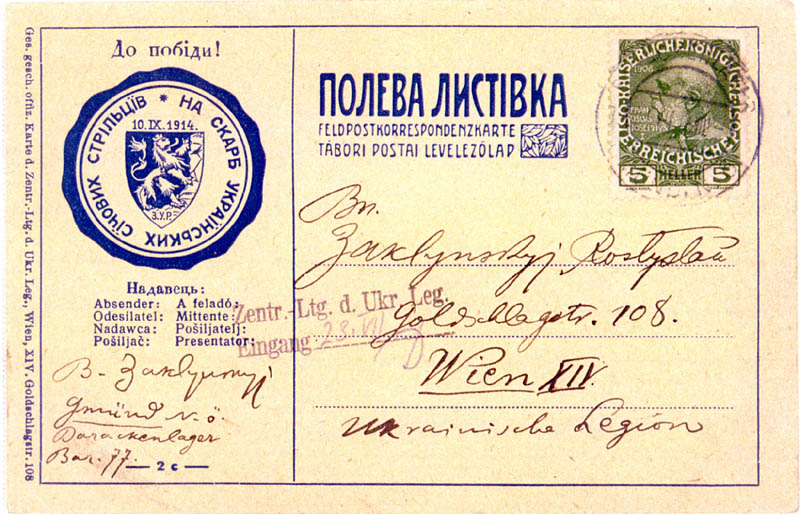 Ges. gesch. offiz. Karte d. Zentr.-Ltg. d. Ukr. Leg., Wien, XIV. Goldschlagstr. 108
До побіди!
НА СКАРБ УКРАЇНСЬКИХ СІЧОВИХ СТРІЛЬЦІВ *
10.IX.1914.
З.У.Р.
Надавець:
Absender: A feladó:
Odesilatel: Mittente:
Nadawca: Pošiljatelj:
Pošiljač: Presentator:
B. Zaklynskyj
Gmünd N. Ö.
Barackenlager
Bar. 77.
2 c
ПОЛЕВА ЛИСТІВКА
FELDPOSTKORRESPONDENZKARTE
TÁBORI POSTAI LEVELEZŐLAP
KAISERLICHE KÖNIGLICHE ÖSTERREICHISCHE POST
1908
FRANZ JOSEPH I
5 HELLER 5
Zentr.-Ltg. d. Ukr. Leg.
Eingang 23. VII
Вп.
Zaklynskyj Rostyslaw
Goldschlagstr. 108.
Wien XIV.
Ukrainische Legion